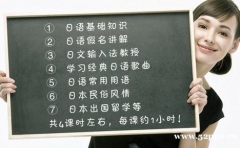 ① 日语基础知识
② 日语假名讲解
③ 日文输入法教授
④ 学习经典日语歌曲
⑤ 日语常用用语
⑥ 日本民俗风情
⑦ 日本出国留学等
共4课时左右，每课约1小时！